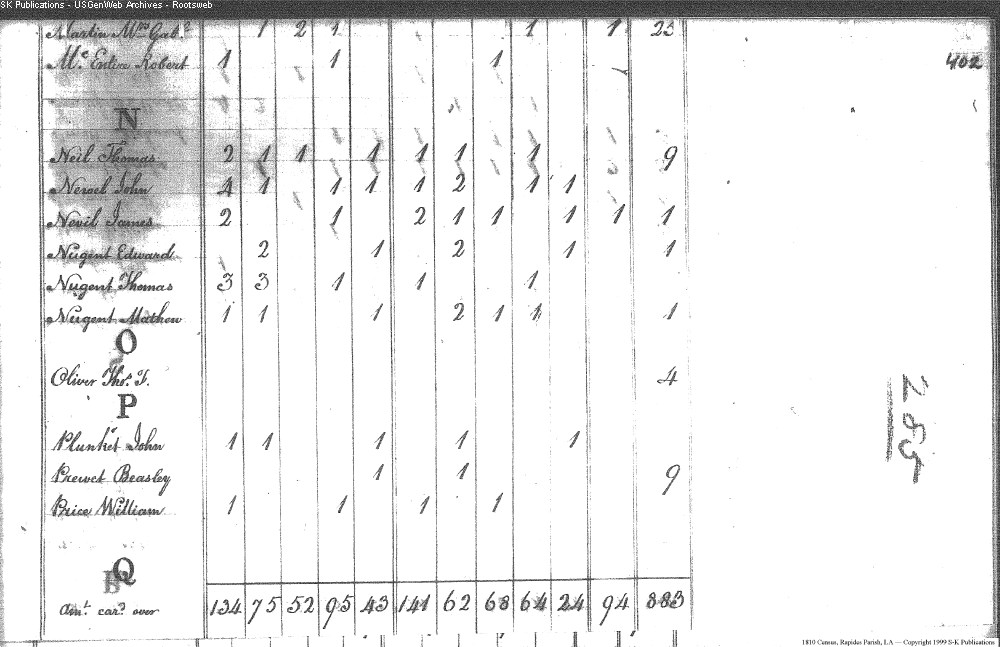 SK Publications - USGenWeb Archives - Rootsweb
Martin Mrs Gabl 1 2 1 1 1 23
Mc Entire Robert 1 1 1
402
N
Neil Thomas 2 1 1 1 1 1 1 9
Newel John 4 1 1 1 1 2 1 1
Nevil James 2 1 2 1 1 1 1 1
Nugent Edward 2 1 2 1 1
Nugent Thomas 3 3 1 1 1
Nugent Mathew 1 1 1 2 1 1 1
O
Oliver Thos. F. 4
P
255
Plunket John 1 1 1 1 1
Prewet Beasley 1 1 9
Price William 1 1 1 1
Q
Amt. card. over 134 75 52 95 43 141 62 68 64 24 94 883
1810 Census, Rapides Parish, LA — Copyright 1999 S-K Publications